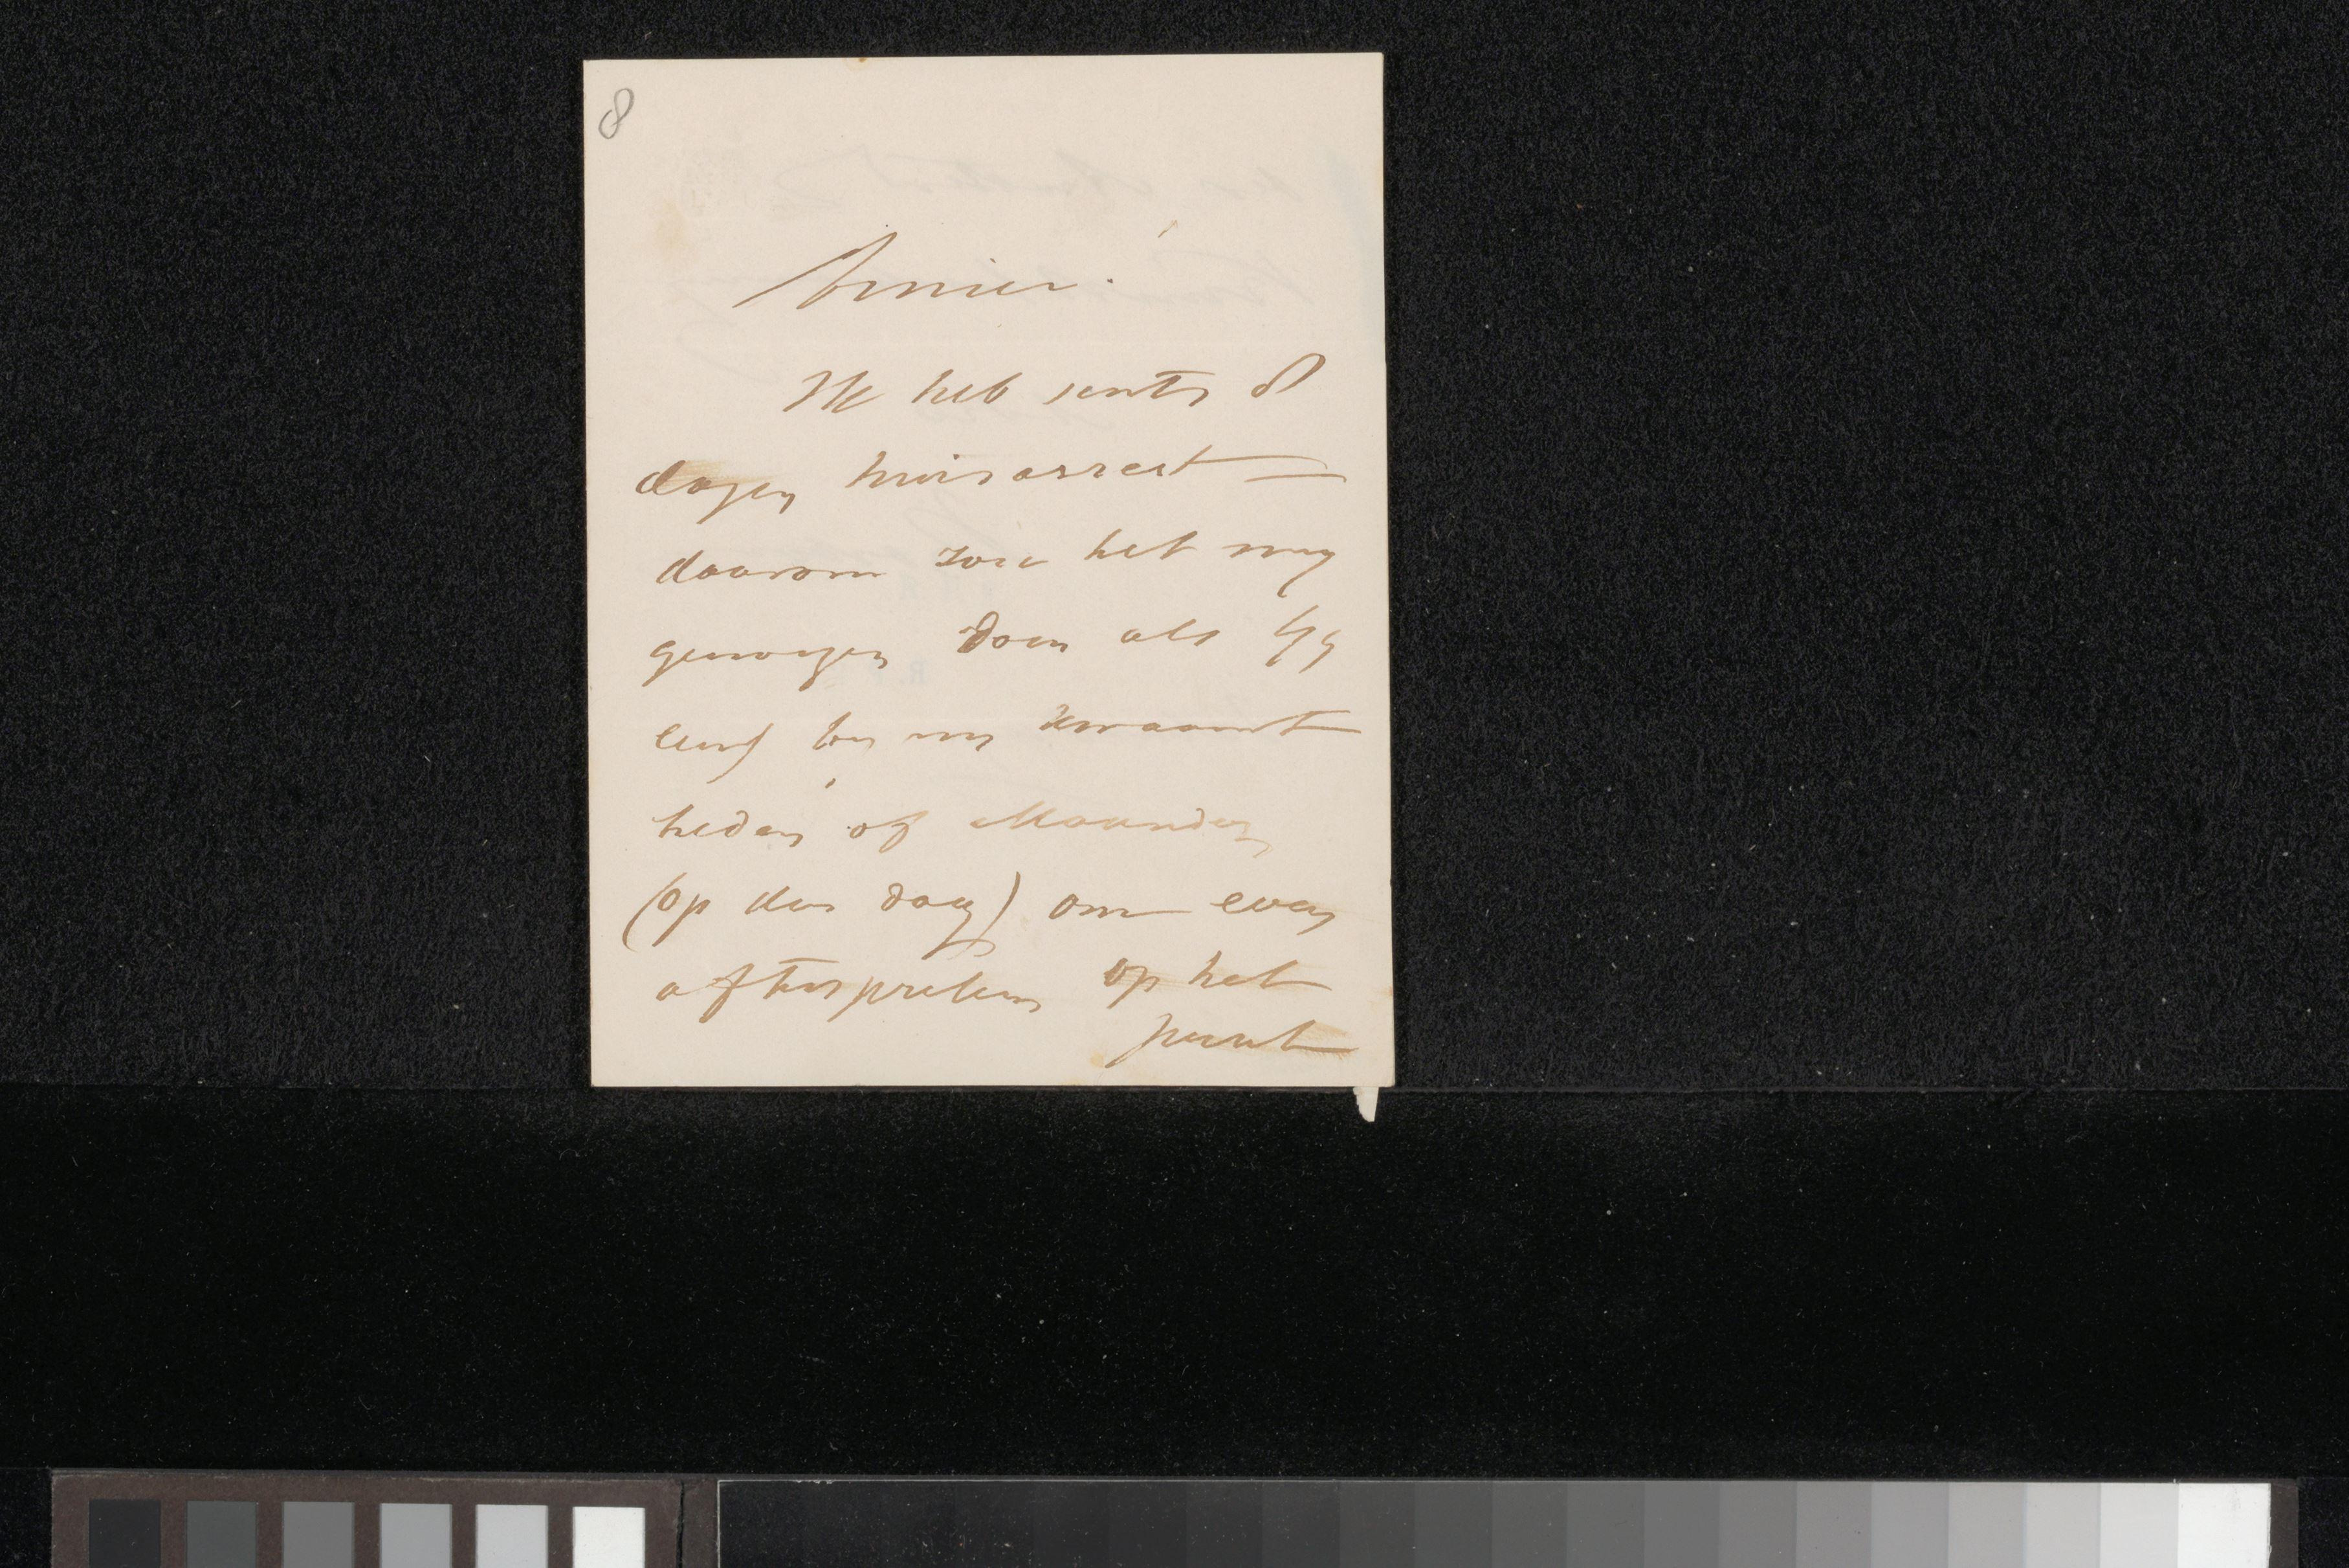 8
Amice.
Ik heb sints 8
dagen huisarrest
daarom zou het my
genoegen doen als Gy
eens by my kwaamt
heden of Maandag
(op den dag) om even
aftespreken op het
punt